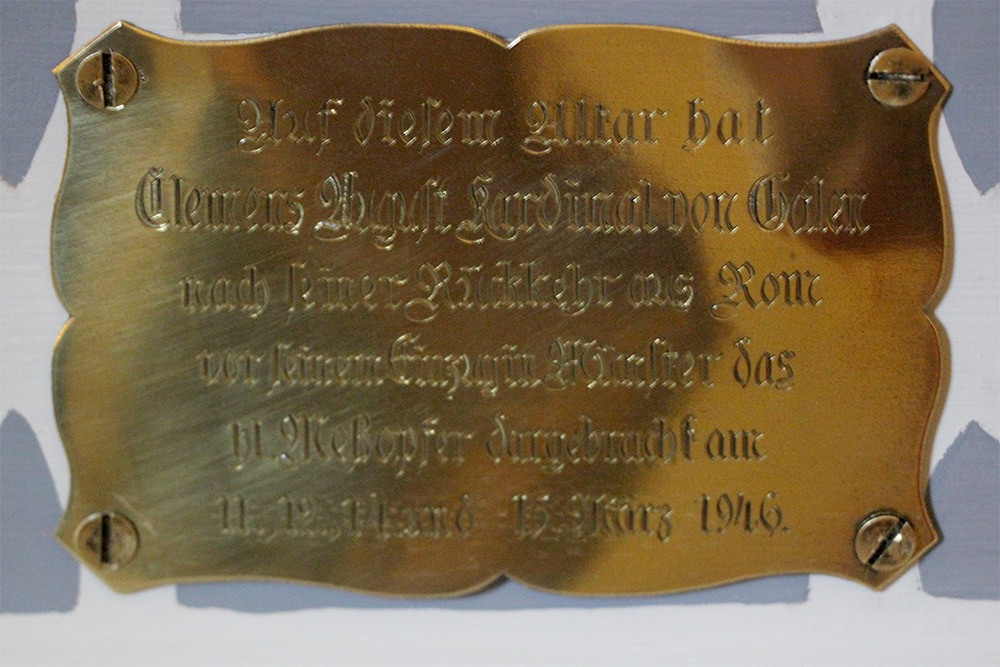 Auf diesem Altar hat
Clemens August Kardinal von Galen
nach seiner Rückkehr aus Rom
vor seinem Einzug in Münster das
hl. Meßopfer dargebracht am
11., 12., 14. und 15. März 1946.